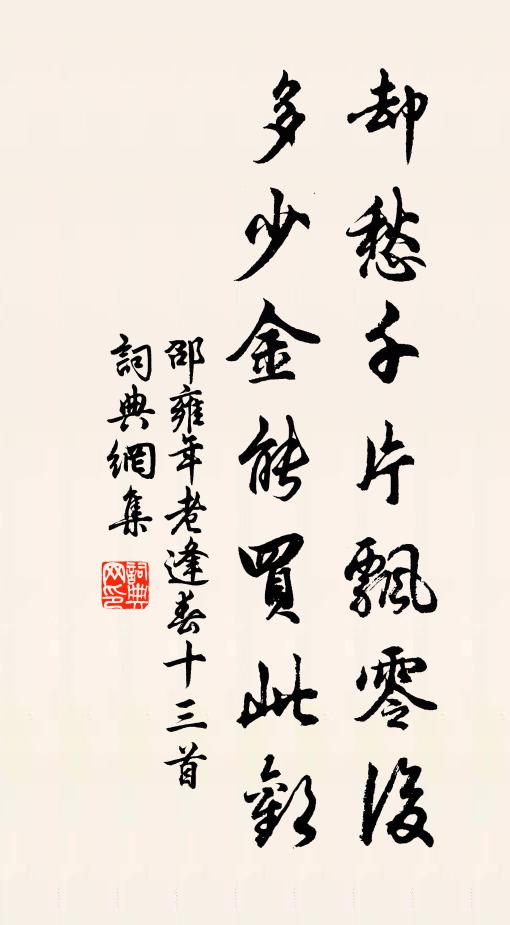 却愁千片飄零後
多少金能買此歡
邵雍年老逢春十三首
詞典網集
詞典
网印